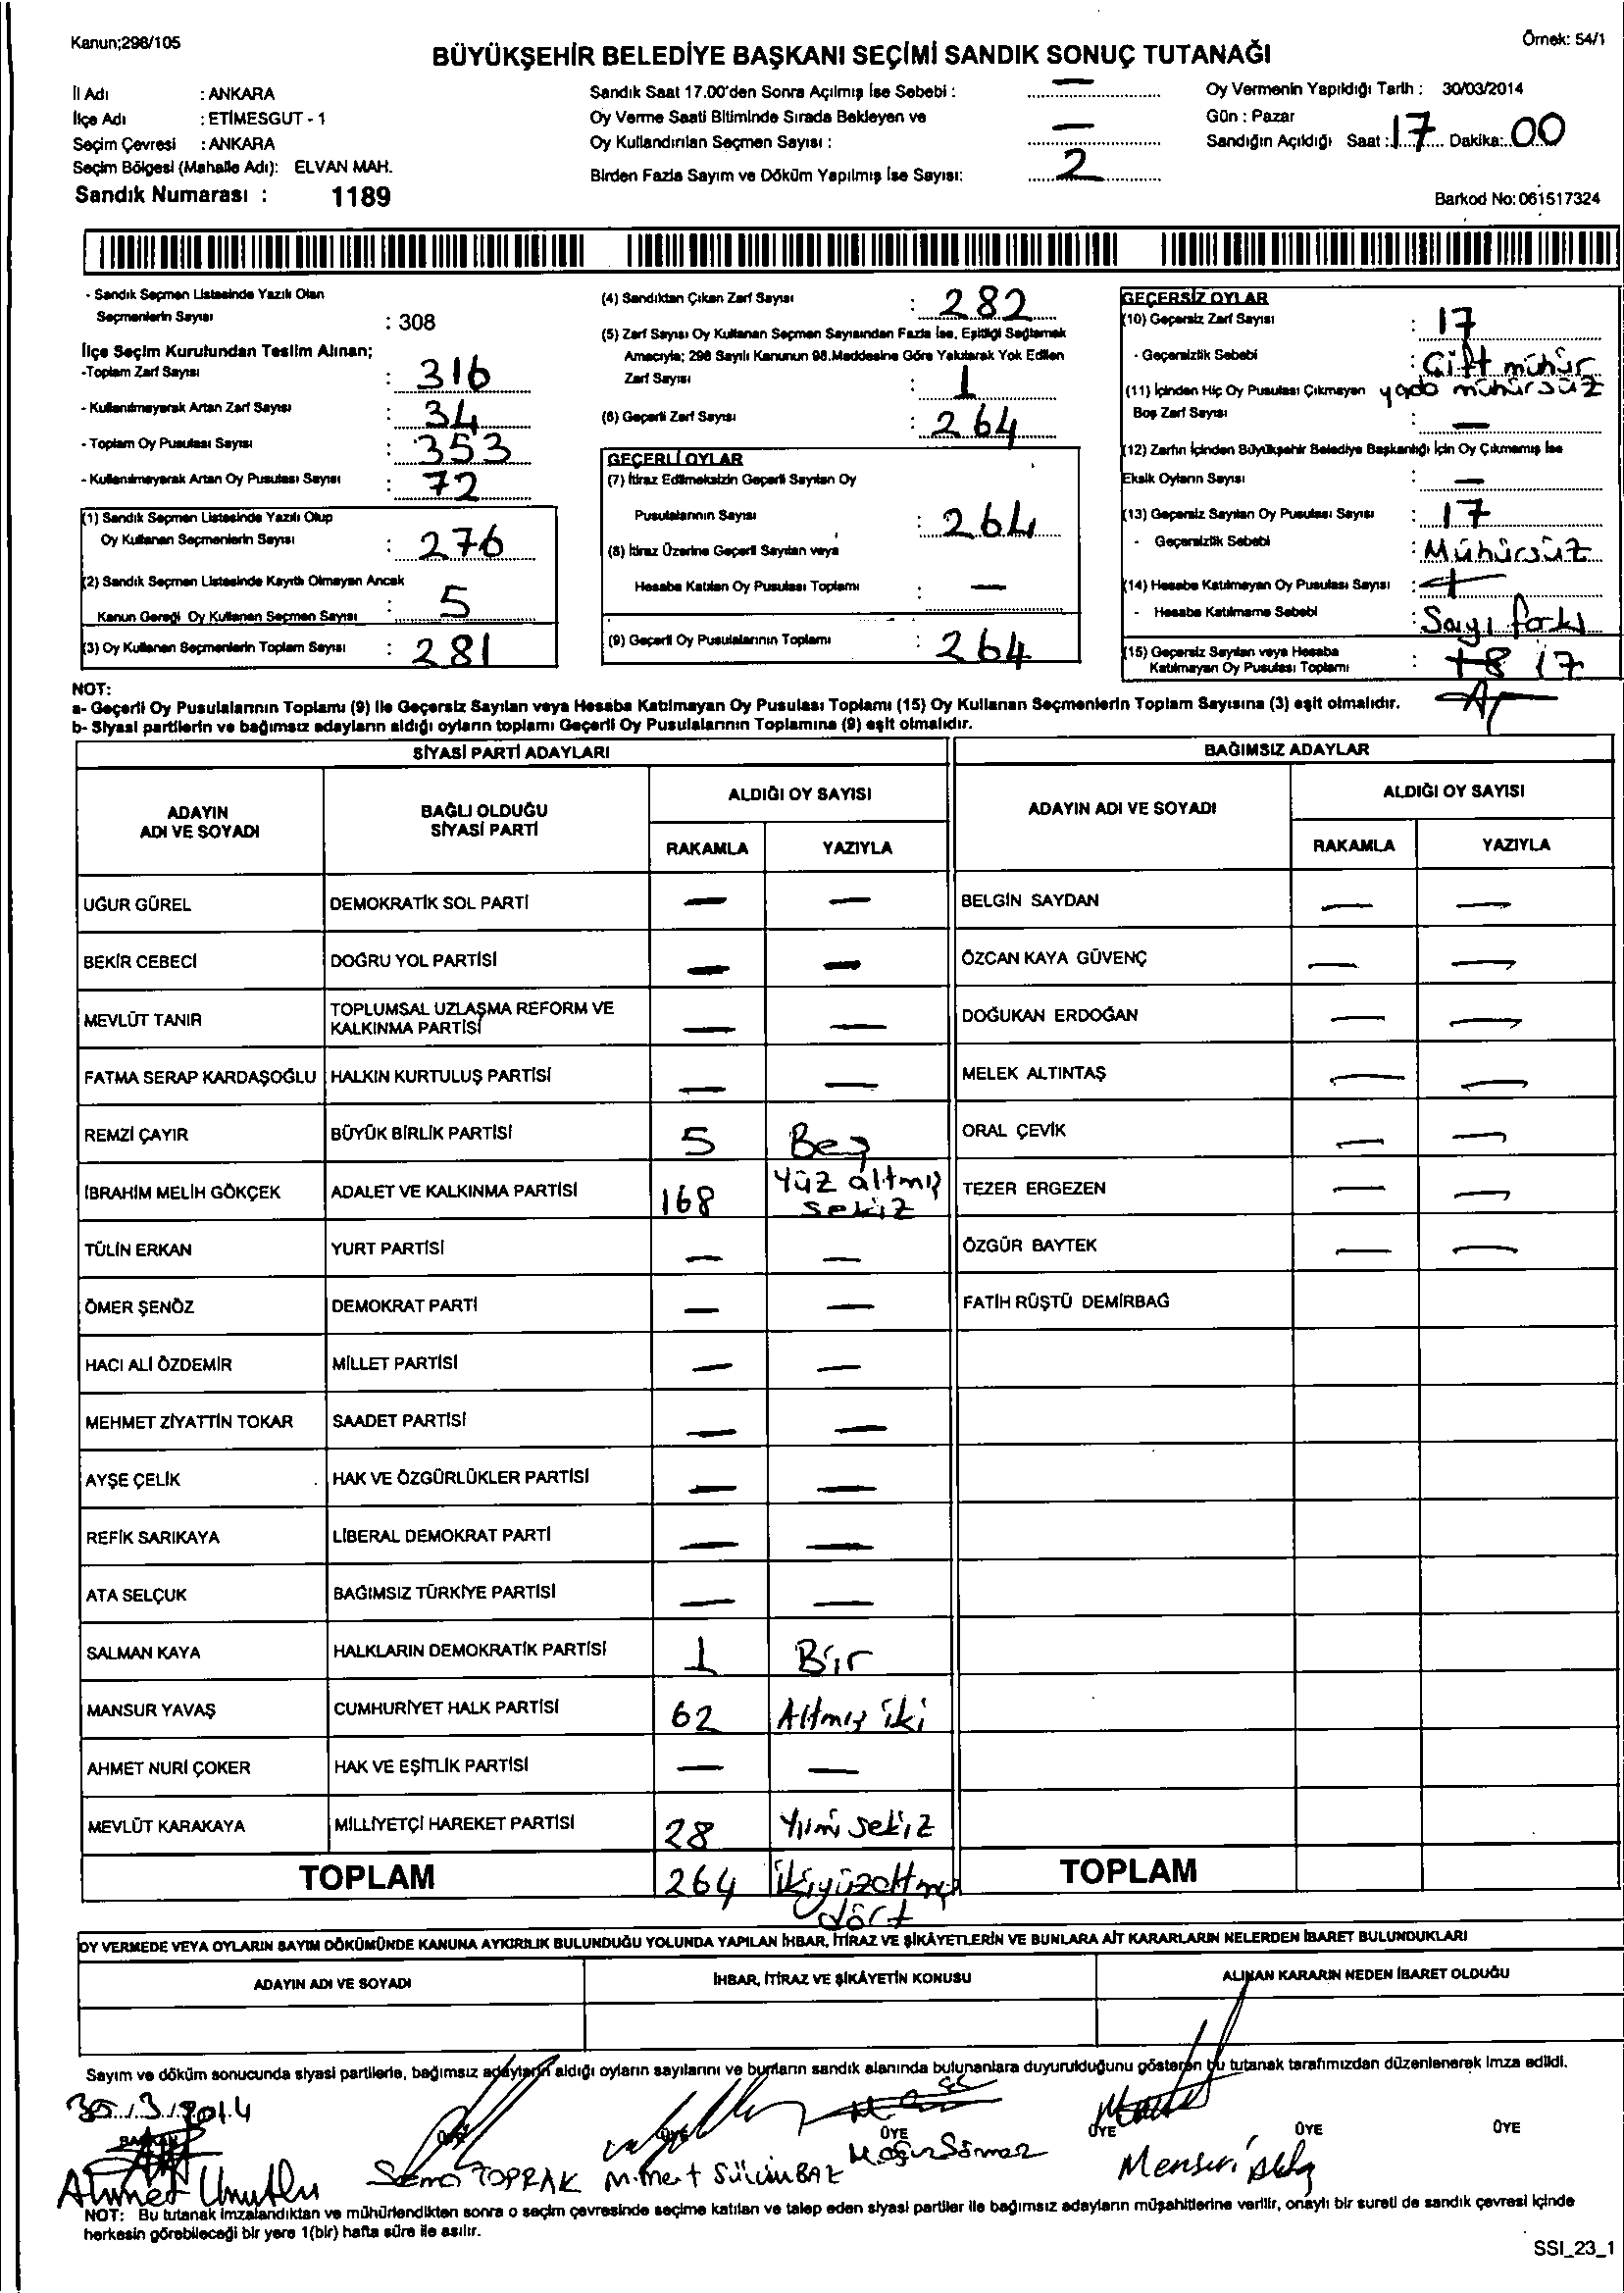 Kanun;298/105
Örnek: 54/1
BÜYÜKŞEHİR BELEDİYE BAŞKANI SEÇİMİ SANDIK SONUÇ TUTANAĞI
İl Adı : ANKARA
İlçe Adı : ETİMESGUT - 1
Seçim Çevresi : ANKARA
Seçim Bölgesi (Mahalle Adı): ELVAN MAH.
Sandık Numarası : 1189
Sandık Saat 17.00'den Sonra Açılmış İse Sebebi : —
Oy Verme Saati Bitiminde Sırada Bekleyen ve
Oy Kullandırılan Seçmen Sayısı : —
Birden Fazla Sayım ve Döküm Yapılmış İse Sayısı: 2
Oy Vermenin Yapıldığı Tarih : 30/03/2014
Gün : Pazar
Sandığın Açıldığı Saat : 17 Dakika: 00
Barkod No: 061517324
- Sandık Seçmen Listesinde Yazılı Olan
Seçmenlerin Sayısı : 308
İlçe Seçim Kurulundan Teslim Alınan;
-Toplam Zarf Sayısı : 316
- Kullanılmayarak Artan Zarf Sayısı : 34
- Toplam Oy Pusulası Sayısı : 353
- Kullanılmayarak Artan Oy Pusulası Sayısı : 72
(1) Sandık Seçmen Listesinde Yazılı Olup
Oy Kullanan Seçmenlerin Sayısı : 276
(2) Sandık Seçmen Listesinde Kayıtlı Olmayan Ancak
Kanun Gereği Oy Kullanan Seçmen Sayısı : 5
(3) Oy Kullanan Seçmenlerin Toplam Sayısı : 281
(4) Sandıktan Çıkan Zarf Sayısı : 282
(5) Zarf Sayısı Oy Kullanan Seçmen Sayısından Fazla İse, Eşitliği Sağlamak
Amacıyla; 298 Sayılı Kanunun 98.Maddesine Göre Yakılarak Yok Edilen
Zarf Sayısı : 1
(6) Geçerli Zarf Sayısı : 264
GEÇERLİ OYLAR
(7) İtiraz Edilmeksizin Geçerli Sayılan Oy
Pusulalarının Sayısı : 264
(8) İtiraz Üzerine Geçerli Sayılan veya
Hesaba Katılan Oy Pusulası Toplamı : —
(9) Geçerli Oy Pusulalarının Toplamı : 264
GEÇERSİZ OYLAR
(10) Geçersiz Zarf Sayısı : 17
- Geçersizlik Sebebi : Çift mühür
(11) İçinden Hiç Oy Pusulası Çıkmayan yada mühürsüz
Boş Zarf Sayısı : —
(12) Zarfın İçinden Büyükşehir Belediye Başkanlığı İçin Oy Çıkmamış İse
Eksik Oyların Sayısı : —
(13) Geçersiz Sayılan Oy Pusulası Sayısı : 17
- Geçersizlik Sebebi : Mühürsüz
(14) Hesaba Katılmayan Oy Pusulası Sayısı :
- Hesaba Katılmama Sebebi : Sayı farkı
(15) Geçersiz Sayılan veya Hesaba
Katılmayan Oy Pusulası Toplamı : 18 17
NOT:
a- Geçerli Oy Pusulalarının Toplamı (9) ile Geçersiz Sayılan veya Hesaba Katılmayan Oy Pusulası Toplamı (15) Oy Kullanan Seçmenlerin Toplam Sayısına (3) eşit olmalıdır.
b- Siyasi partilerin ve bağımsız adayların aldığı oyların toplamı Geçerli Oy Pusulalarının Toplamına (9) eşit olmalıdır.
SİYASİ PARTİ ADAYLARI
BAĞIMSIZ ADAYLAR
ADAYIN
ADI VE SOYADI
BAĞLI OLDUĞU
SİYASİ PARTİ
ALDIĞI OY SAYISI
RAKAMLA YAZIYLA
ADAYIN ADI VE SOYADI
ALDIĞI OY SAYISI
RAKAMLA YAZIYLA
UĞUR GÜREL DEMOKRATİK SOL PARTİ — — BELGİN SAYDAN — —
BEKİR CEBECİ DOĞRU YOL PARTİSİ — — ÖZCAN KAYA GÜVENÇ — —
MEVLÜT TANIR TOPLUMSAL UZLAŞMA REFORM VE
KALKINMA PARTİSİ — — DOĞUKAN ERDOĞAN — —
FATMA SERAP KARDAŞOĞLU HALKIN KURTULUŞ PARTİSİ — — MELEK ALTINTAŞ — —
REMZİ ÇAYIR BÜYÜK BİRLİK PARTİSİ 5 Beş ORAL ÇEVİK — —
İBRAHİM MELİH GÖKÇEK ADALET VE KALKINMA PARTİSİ 168 Yüz altmış
sekiz TEZER ERGEZEN — —
TÜLİN ERKAN YURT PARTİSİ — — ÖZGÜR BAYTEK — —
ÖMER ŞENÖZ DEMOKRAT PARTİ — — FATİH RÜŞTÜ DEMİRBAĞ
HACI ALİ ÖZDEMİR MİLLET PARTİSİ — —
MEHMET ZİYATTİN TOKAR SAADET PARTİSİ — —
AYŞE ÇELİK HAK VE ÖZGÜRLÜKLER PARTİSİ — —
REFİK SARIKAYA LİBERAL DEMOKRAT PARTİ — —
ATA SELÇUK BAĞIMSIZ TÜRKİYE PARTİSİ — —
SALMAN KAYA HALKLARIN DEMOKRATİK PARTİSİ 1 Bir
MANSUR YAVAŞ CUMHURİYET HALK PARTİSİ 62 Altmış iki
AHMET NURİ ÇOKER HAK VE EŞİTLİK PARTİSİ — —
MEVLÜT KARAKAYA MİLLİYETÇİ HAREKET PARTİSİ 28 Yirmi sekiz
TOPLAM 264 ikiyüzaltmış
dört TOPLAM
OY VERMEDE VEYA OYLARIN SAYIM DÖKÜMÜNDE KANUNA AYKIRILIK BULUNDUĞU YOLUNDA YAPILAN İHBAR, İTİRAZ VE ŞİKÂYETLERİN VE BUNLARA AİT KARARLARIN NELERDEN İBARET BULUNDUKLARI
ADAYIN ADI VE SOYADI İHBAR, İTİRAZ VE ŞİKÂYETİN KONUSU ALINAN KARARIN NEDEN İBARET OLDUĞU
Sayım ve döküm sonucunda siyasi partilerle, bağımsız adayların aldığı oyların sayılarını ve bunların sandık alanında bulunanlara duyurulduğunu gösteren bu tutanak tarafımızdan düzenlenerek imza edildi.
30.3.2014
BAŞKAN ÜYE ÜYE ÜYE ÜYE ÜYE ÜYE
Ahmet Umutlu Sema TOPRAK M.mert
NOT: Bu tutanak imzalandıktan ve mühürlendikten sonra o seçim çevresinde seçime katılan ve talep eden siyasi partiler ile bağımsız adayların müşahitlerine verilir, onaylı bir sureti de sandık çevresi içinde
herkesin görebileceği bir yere 1(bir) hafta süre ile asılır.
SSI_23_1